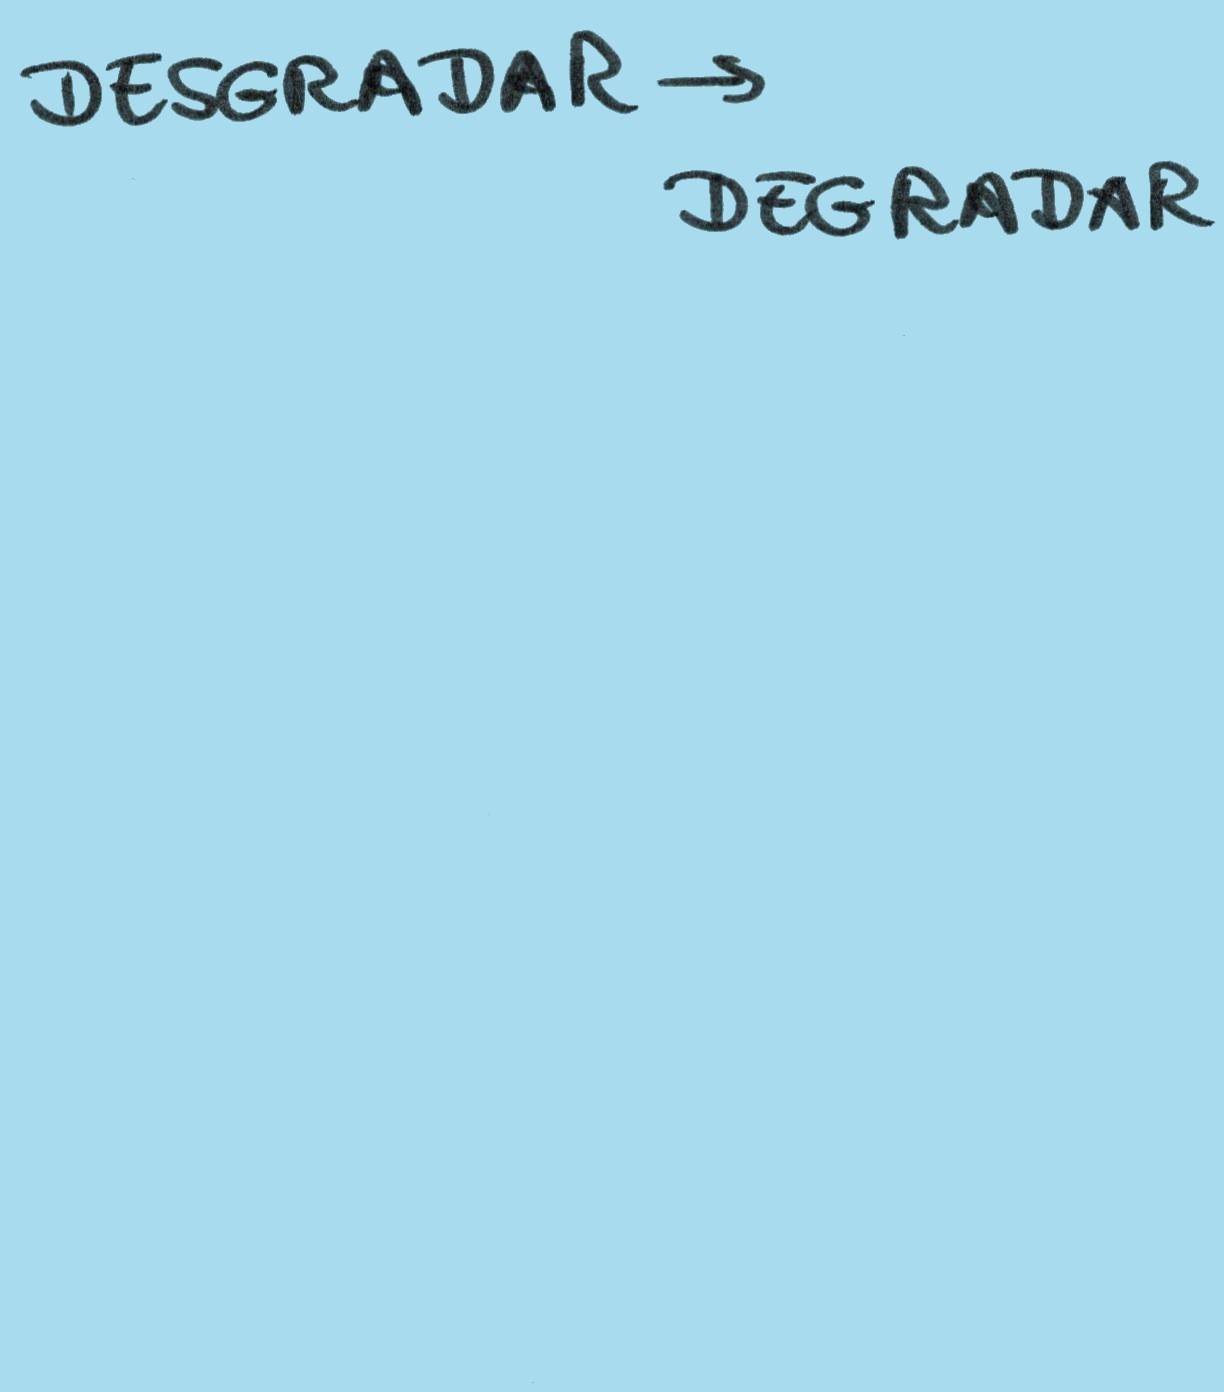 DESGRADAR →
DEGRADAR